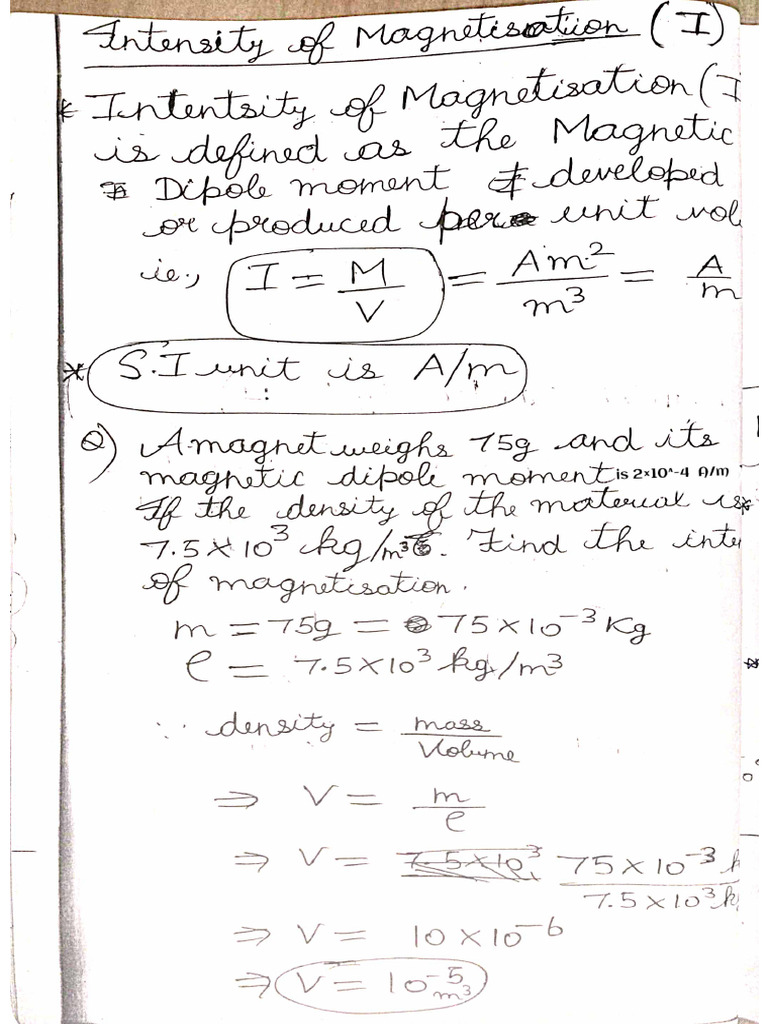 Intensity of Magnetisation (I)
* Intentsity of Magnetisation (I
is defined as the Magnetic
Dipole moment developed
or produced per unit vol
ie., I = M/V = Am²/m³ = A/m
* S.I unit is A/m
Q) A magnet weighs 75g and its
magnetic dipole moment is 2×10^-4 A/m
If the density of the material is
7.5×10³ kg/m³. Find the inte
of magnetisation.
m = 75g = 75×10⁻³ Kg
ρ = 7.5×10³ kg/m³
∵ density = mass/Volume
⇒ V = m/ρ
⇒ V = 7.5×10³ 75×10⁻³ k/7.5×10³ k
⇒ V = 10×10⁻⁶
⇒ V = 10⁻⁵ m³